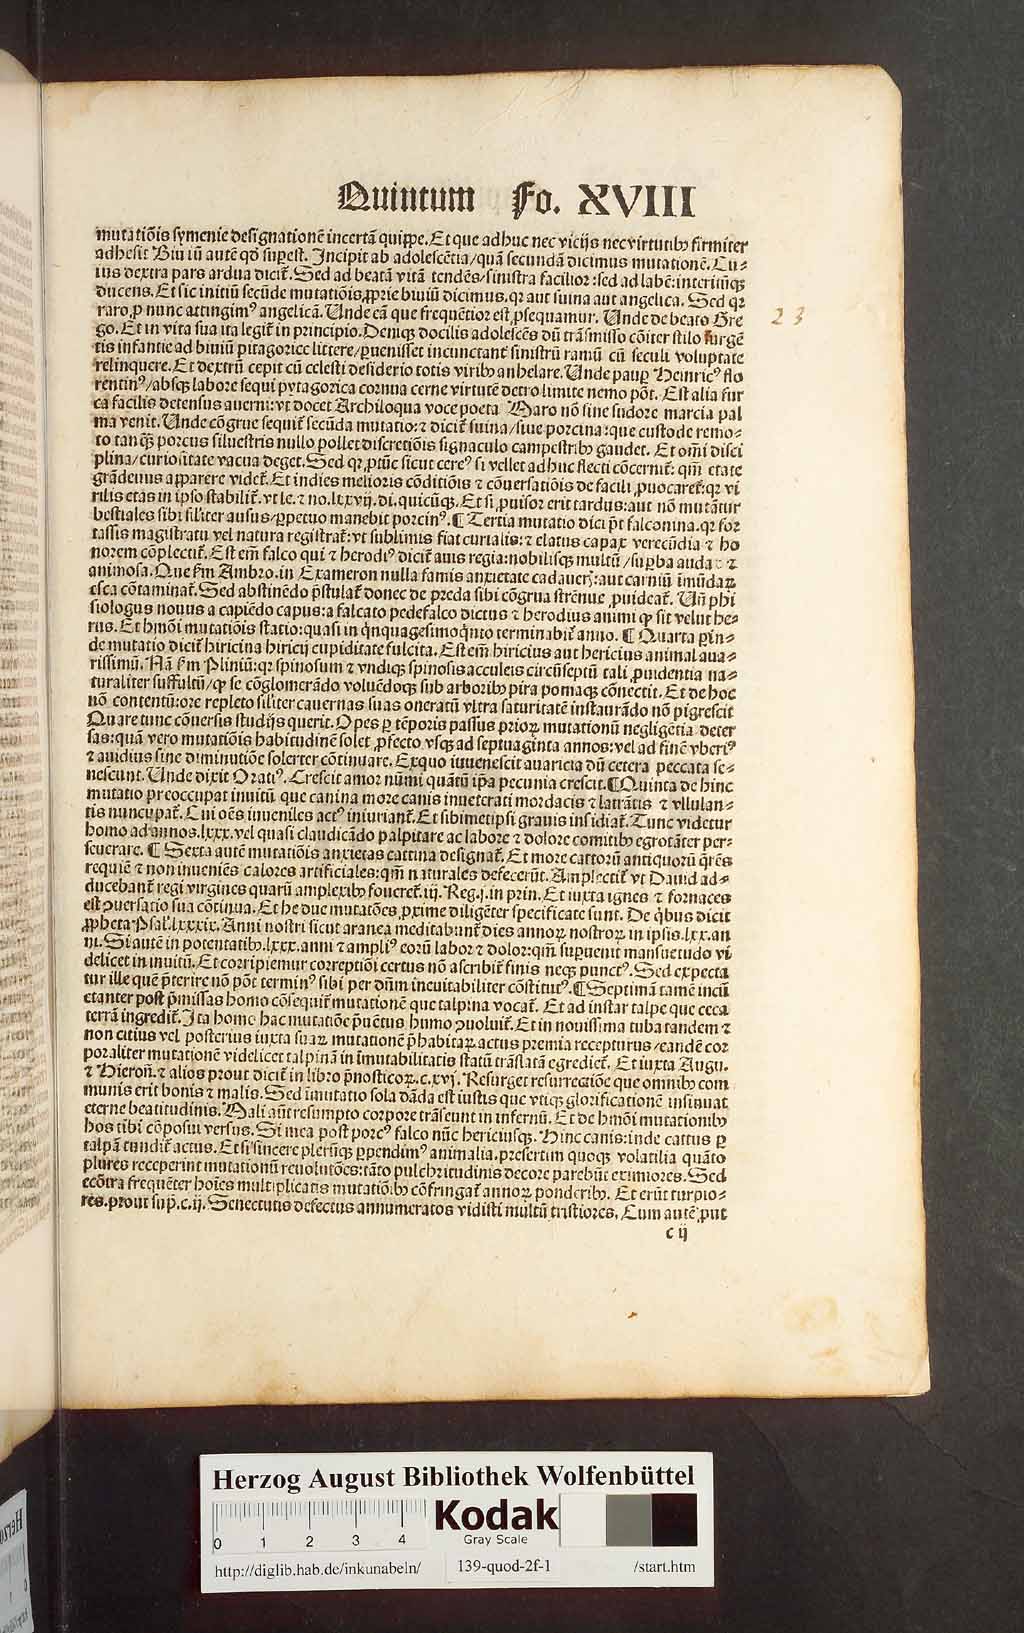 Quintum Fo. XVIII
mutatiõis symenie designationẽ incertã quippe. Et que adhuc nec vicijs nec virtutibꝫ firmiter
adhesit Biu iũ autẽ qd̃ suꝑest. Incipit ab adolescẽtia/quã secundã dicimus mutationẽ. Cu-
ius dextra pars ardua dicit̃. Sed ad beatã vitã tendẽs/sinistra facilior: sed ad labẽ: interitũqꝫ
ducens. Et sic initiũ secũde mutatiõis ꝓprie biuiũ dicimus. qꝛ aut suina aut angelica. Sed qꝛ
raro ꝓ nunc attingimꝰ angelicã. Unde eã que frequẽtior est ꝓsequamur. Unde de beato Gre
go. Et in vita sua ita legit̃ in principio. Deniqꝫ docilis adolescẽs dũ trãsmisso cõiter stilo surgẽ
tis infantie ad biuiũ pitagorice littere/ꝑuenisset incunctant̃ sinistrũ ramũ cũ seculi voluptate
relinquere. Et dextrũ cepit cũ celesti desiderio totis viribꝫ anhelare. Unde pauꝑ Heinricꝰ flo
rentinꝰ/absqꝫ labore sequi pytagorica cornua cerne virtutẽ detro limite nemo põt. Est alia fur
ca facilis detensus auerni: vt docet Archiloqua voce poeta Maro nõ sine sudore marcia pal
ma venit. Unde cõgrue sequit̃ secũda mutatio: ⁊ dicit̃ suina/siue porcina: que custode remo-
to tanqꝫ porcus siluestris nullo pollet discretiõis signaculo campestribꝫ gaudet. Et om̃i disci
plina/curiositate vacua deget. Sed qꝛ ꝓtũc sicut cereꝰ si vellet adhuc flecti cõcernit̃: qm̃ etate
grãdeuus apparere videt̃. Et indies melioris cõditiõis ⁊ cõuersatiõis de facili ꝓuocaret̃: qꝛ vi
rilis etas in ipso stabilit̃. vt le. ⁊ no. lxxvij. di. quicũqꝫ. Et si ꝓuisor erit tardus: aut nõ mutãtur
bestiales sibi siliter ausus/ꝑpetuo manebit porcinꝰ. ¶ Tertia mutatio dici p̃t falconina. qꝛ for
tassis magistratu vel natura registrat̃: vt sublimis fiat curialis: ⁊ elatus capax verecũdia ⁊ ho
norem cõplectit̃. Est em̃ falco qui ⁊ herodiꝰ dicit̃ auis regia: nobilisqꝫ multũ/suꝑba auda ⁊
animosa. Que fm̃ Ambro. in Exameron nulla famis anxietate cadaueꝝ: aut carniũ ĩmũdaꝝ
esca cõtaminat̃. Sed abstinẽdo p̃stulat̃ donec de preda sibi cõgrua strẽnue ꝓuideat̃. Uñ phi
siologus nouus a capiẽdo capus: a falcato pede falco dictus ⁊ herodius animi ꝙ sit velut he-
rus. Et hmõi mutatiõis statio: quasi in q̃nquagesimo q̃nto terminabit̃ anno. ¶ Quarta ꝑin-
de mutatio dicit̃ hiricina hiricij cupiditate fulcita. Est em̃ hiricius aut hericius animal aua-
rissimũ. Nã fm̃ Pliniũ: qꝛ spinosum ⁊ vndiqꝫ spinosis acculeis circũseptũ tali ꝓuidentia na-
turaliter suffultũ/ꝙ se cõglomerãdo voluẽdoqꝫ sub arboribꝫ pira pomaqꝫ cõnectit. Et de hoc
nõ contentũ: ore repleto siliter cauernas suas oneratũ vltra saturitatẽ instaurãdo nõ pigrescit
Quare tunc cõuersis studijs querit. Opes ꝑ tẽporis passus prioꝝ mutationũ negligẽtia deter
sas: quã vero mutatiõis habitudinẽ solet ꝓfecto vsqꝫ ad septuaginta annos: vel ad finẽ vberiꝰ
⁊ auidius sine diminutiõe solerter cõtinuare. Ex quo iuuenescit auaricia dũ cetera peccata se-
nescunt. Unde dixit Oratiꝰ. Crescit amor nũmi quãtũ ip̃a pecunia crescit. ¶ Quinta de hinc
mutatio preoccupat inuitũ que canina more canis inueterati mordacis ⁊ latrãtis ⁊ vllulan-
tis nuncupat̃. Cui oẽs iuueniles actꝰ iniuriant̃. Et sibimetipsi grauis insidiat̃. Tunc videtur
homo ad annos. lxxx. vel quasi claudicãdo palpitare ac labore ⁊ dolore comitibꝫ egrotãter per-
seuerare. ¶ Sexta autẽ mutatiõis anxietas cattina designat̃. Et more cattorũ antiquorũ q̃rẽs
requiẽ ⁊ non inueniẽs calores artificiales: qm̃ naturales defecerũt. Amplectit̃ vt Dauid ad-
ducebant̃ regi virgines quarũ amplexibꝫ foueret̃. iij. Reg. j. in prin. Et iuxta ignes ⁊ fornaces
est ꝯuersatio sua cõtinua. Et he due mutatões ꝓxime diligẽter specificate sunt. De q̃bus dicit
ꝓpheta Psal. lxxxix. Anni nostri sicut aranea meditabunt̃ dies annoꝝ nostroꝝ in ipsis. lxx. an
ni. Si autẽ in potentatibꝫ. lxxx. anni ⁊ ampliꝰ eorũ labor ⁊ dolor: qm̃ suꝑuenit mansuetudo vi
delicet in inuitũ. Et corripiemur correptiõi certus nõ ascribit̃ finis neqꝫ punctꝰ. Sed expecta
tur ille quẽ p̃terire nõ põt terminꝰ sibi per dñm ineuitabiliter cõstitutꝰ. ¶ Septimã tamẽ incũ
ctanter post p̃missas homo cõsequit̃ mutationẽ que talpina vocat̃. Et ad instar talpe que ceca
terrã ingredit̃. Ita homo hac mutatiõe p̃uẽtus humo ꝯuoluit̃. Et in nouissima tuba tandem ⁊
non citius vel posterius iuxta suaꝝ mutationẽ p̃habitaꝝ actus premia recepturus/eandẽ cor
poraliter mutationẽ videlicet talpinã in ĩmutabilitatis statũ trãslatã egrediet̃. Et iuxta Augu.
⁊ Hieroñ. ⁊ alios prout dicit̃ in libro p̃nosticoꝝ. c. xvj. Resurget resurrectiõe que omnibꝫ com
munis erit bonis ⁊ malis. Sed ĩmutatio sola dãda est iustis que vtiqꝫ glorificationẽ insinuat
eterne beatitudinis. Mali aũt resumpto corpore trãseunt in infernũ. Et de hmõi mutationibꝫ
hos tibi cõposui versus. Si mea post porcꝰ falco nũc hericiusqꝫ. Hinc canis: inde cattus ꝑ
talpã tundit̃ actus. Et si sincere pleruqꝫ ꝑpendimꝰ animalia. presertim quoqꝫ volatilia quãto
plures receperint mutationũ reuolutões: tãto pulchritudinis decore parebũt eximiores. Sed
ecõtra frequẽter hoĩes multiplicatis mutatiõibꝫ cõfringãt annoꝝ ponderibꝫ. Et erũt turpio-
res. prout suꝑ. c. ij. Senectutis defectus annumeratos vidisti multũ tristiores. Cum autẽ put
c ij
23
Herzog August Bibliothek Wolfenbüttel
0 1 2 3 4
Kodak
Gray Scale
http://diglib.hab.de/inkunabeln/ 139-quod-2f-1 /start.htm